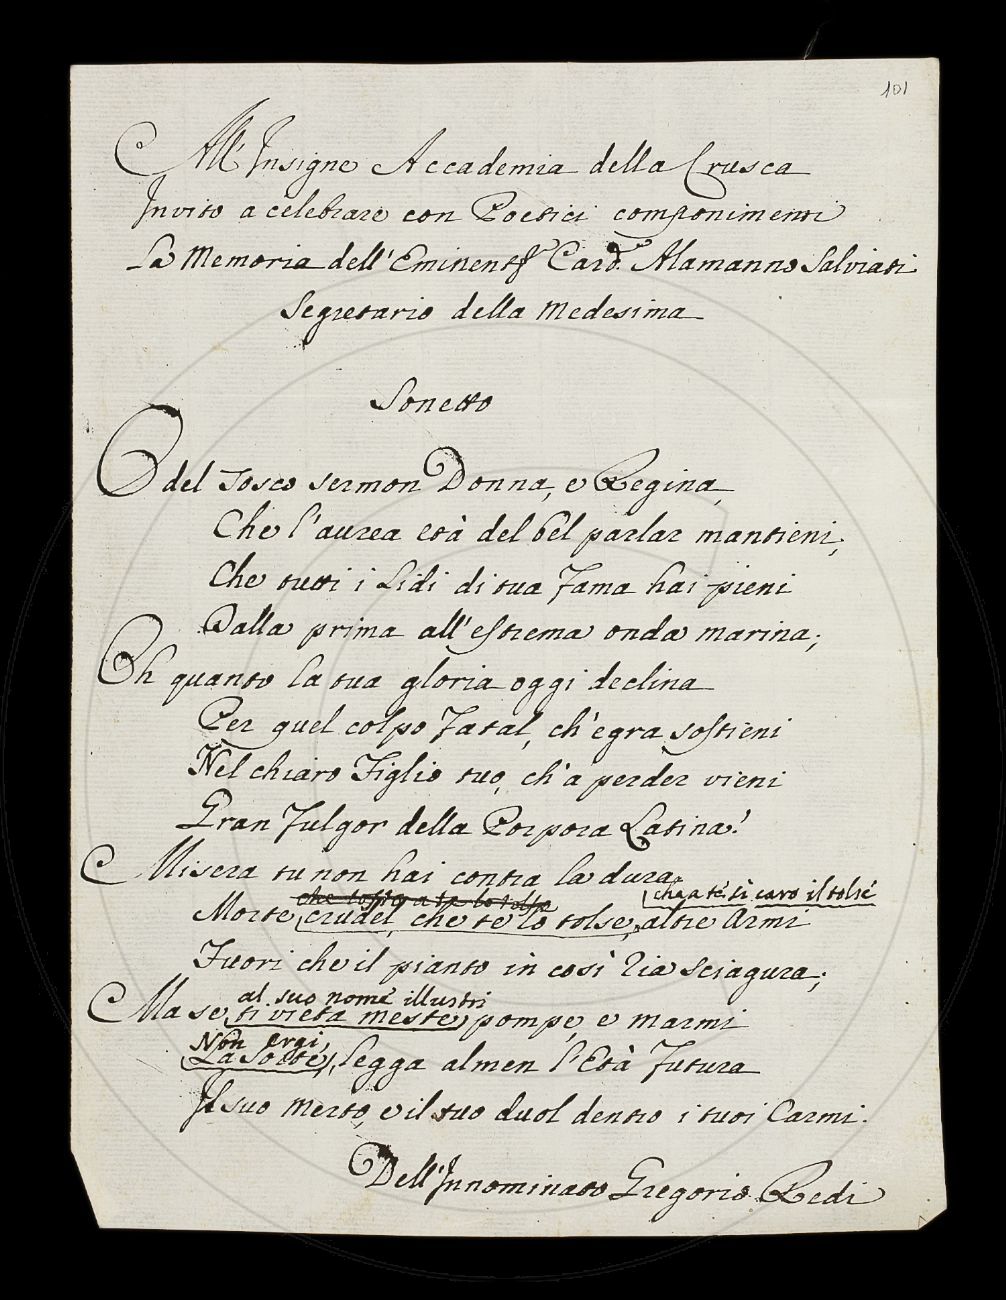 101
All'Insigne Accademia della Crusca
Invito a celebrare con Poetici componimenti
La Memoria dell'Eminentss.o Card. Alamanno Salviati
Segretario della Medesima
Sonetto
O del Tosco sermon Donna, e Regina,
Che l'aurea età del bel parlar mantieni,
Che tutti i Lidi di tua Fama hai pieni
Dalla prima all'estrema onda marina;
Oh quanto la tua gloria oggi declina
Per quel colpo Fatal, ch'egra sostieni
Nel chiaro Figlio tuo, ch'a perder vieni
Gran Fulgor della Porpora Latina!
Misera tu non hai contra la dura
che a té sì caro il tolsé
Morte crudel, che te lo tolse, altre Armi
Fuori che il pianto in così ria sciagura;
al suo nomé illustri
Ma se ti vieta meste pompe, e marmi
Non ergi,
La Sorte, legga almen l'Età Futura
Il suo Merto, e il tuo duol dentro i tuoi Carmi.
Dell'Innominato Gregorio Redi